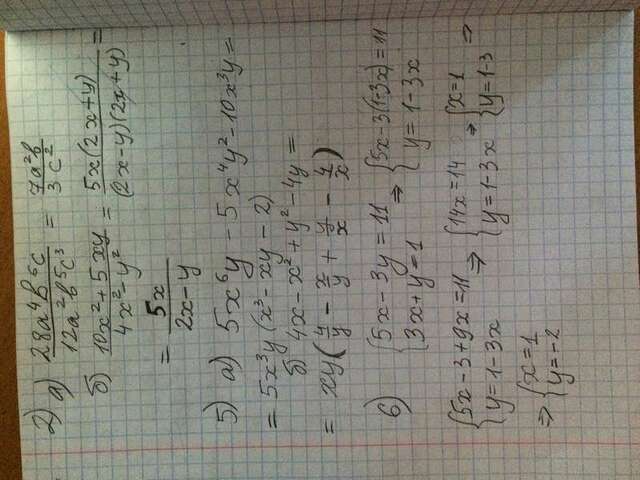 2) а) 28a⁴b⁶c / 12a²b⁵c³ = 7a²b / 3c²
б) 10x²+5xy / 4x²-y² = 5x(2x+y) / (2x-y)(2x+y) =
= 5x / 2x-y
5) а) 5x⁶y - 5x⁴y² - 10x³y =
= 5x³y (x³ - xy - 2)
б) 4x - x² + y² - 4y =
= xy (4/y - x/y + y/x - 4/x)
6) {5x - 3y = 11 {3x + y = 1 ⇒ {5x - 3(1-3x) = 11 {y = 1 - 3x
{5x - 3 + 9x = 11 {y = 1 - 3x ⇒ {14x = 14 {y = 1 - 3x ⇒ {x = 1 {y = 1-3 ⇒
⇒ {x = 1 {y = -2